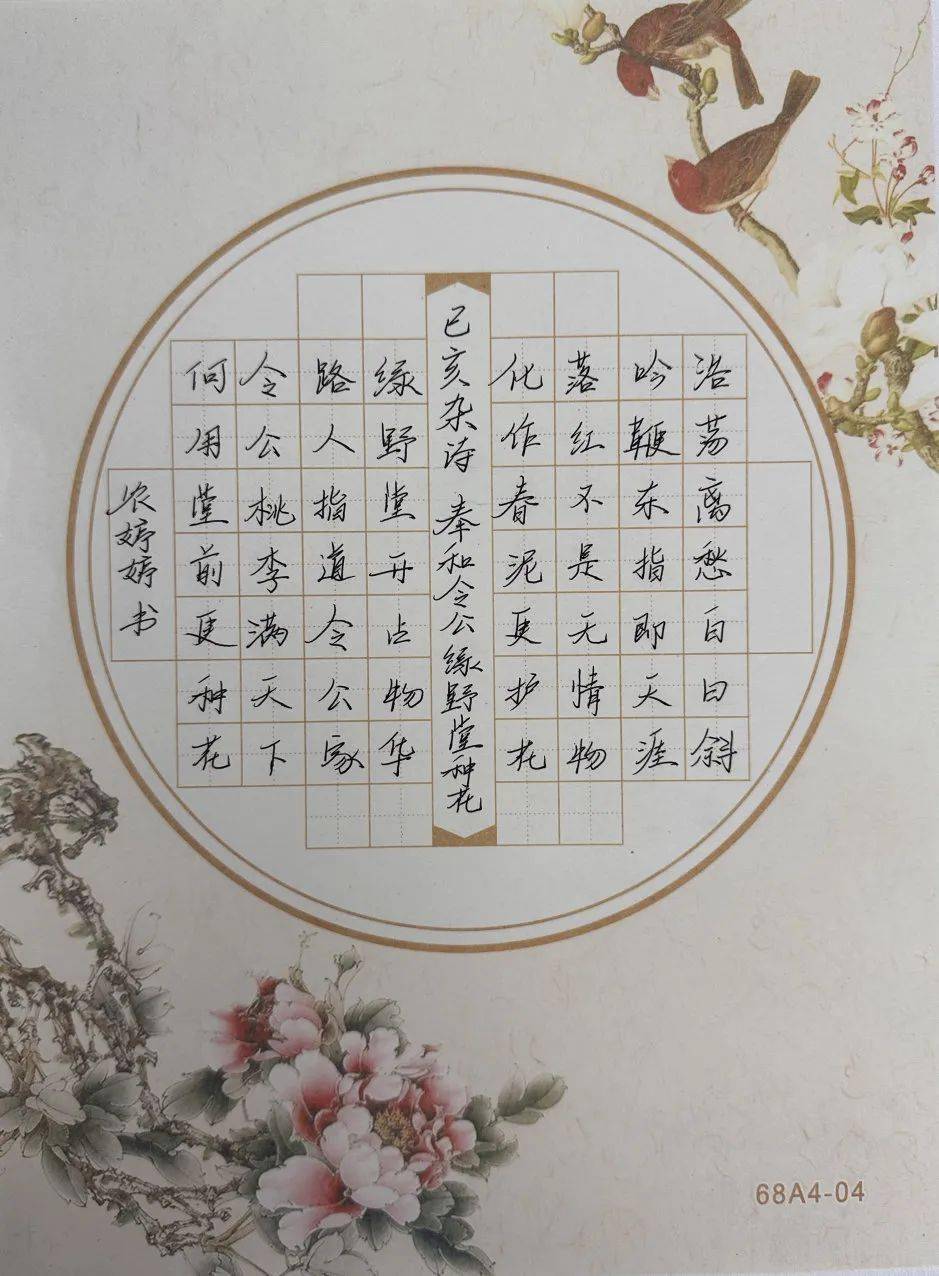 浩荡离愁白日斜
吟鞭东指即天涯
落红不是无情物
化作春泥更护花
已亥杂诗 奉和令公绿野堂种花
绿野堂开占物华
路人指道令公家
令公桃李满天下
何用堂前更种花
农婷婷书
68A4-04